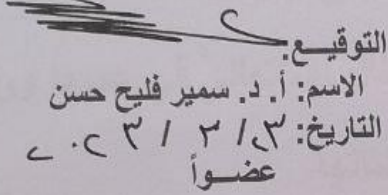 التوقيـع:
الاسم: أ. د. سمير فليح حسن
التاريخ: ٢٣/ ٣ / ٢٠٢٣
عضـواً